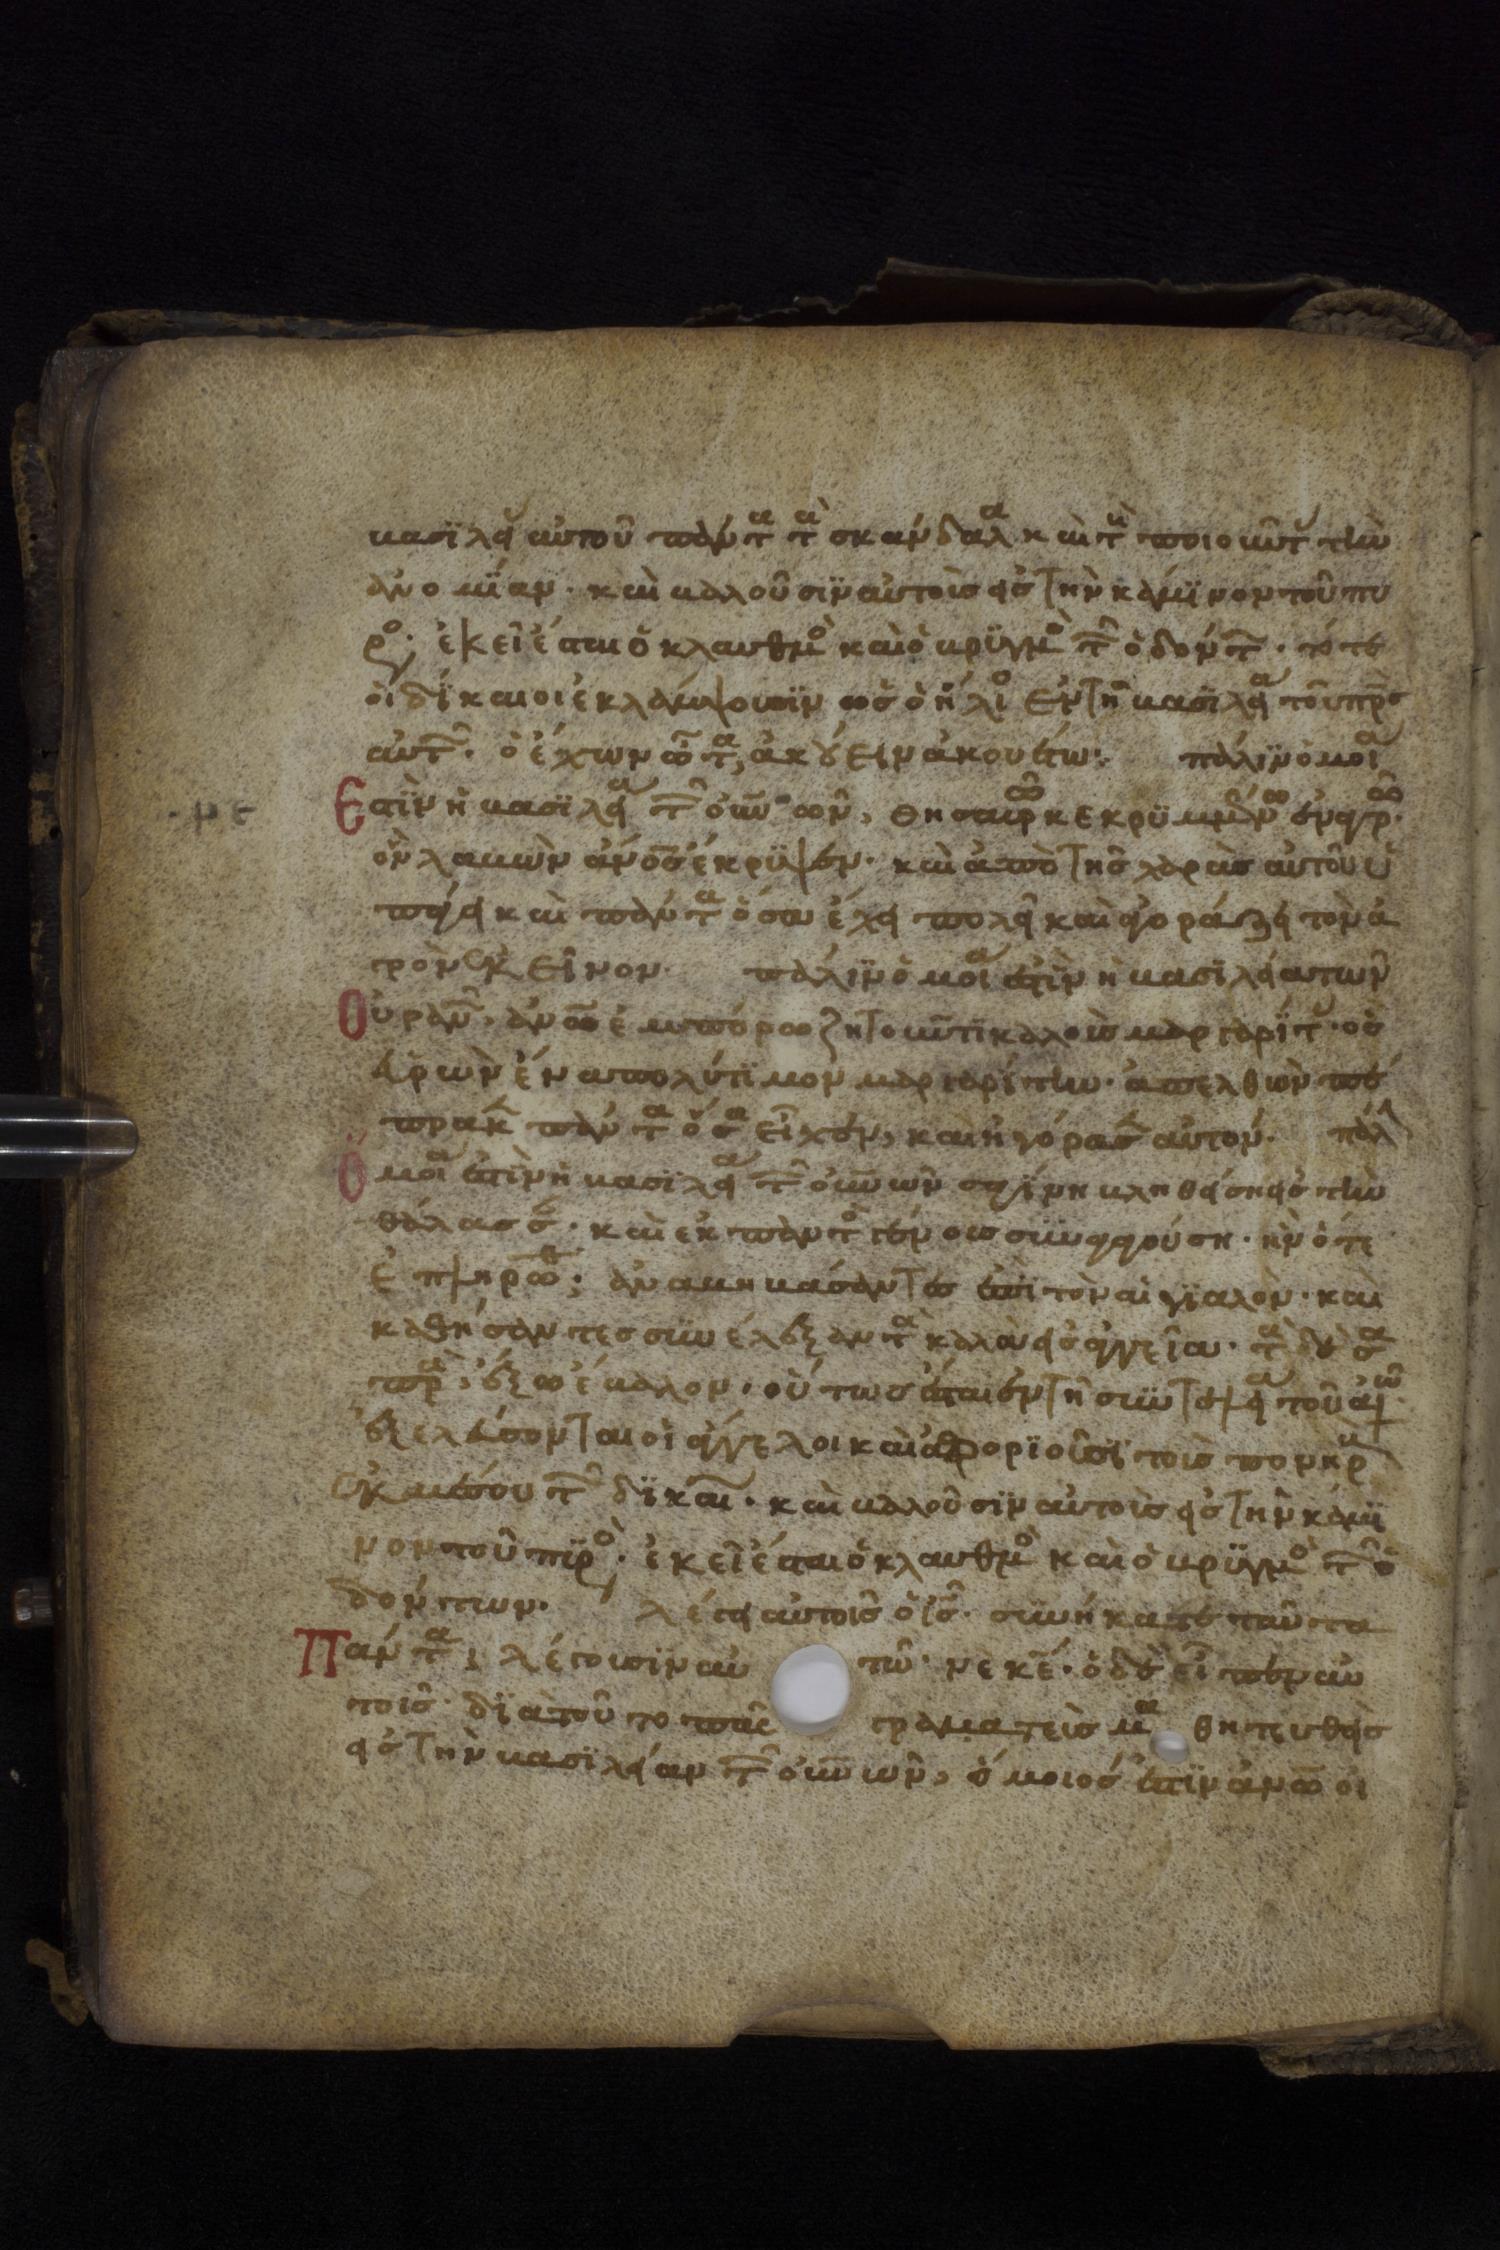 βασϊλεί αὐτοῦ πάντα τὰ σκάνδαλα καὶ τ(οὺς) ποιοῦντ(ας) τὴν
ἀνομΐαν· καὶ βαλοῦσϊν αὐτοὺς εἰς τὴν κάμϊνον τοῦ πυ
ρο· ἐκεῖ ἔσται ὁ κλαυθμὸ καὶ ὁ βρϋγμὸ τῶν ὀδόντ· τότε
οἱ δΐκαιοι ἐκλάμψουσϊν ὡς ὁ ἥλιο ἐν τῇ βασϊλεία τοῦ πρς
αὐτῶν· ὁ ἔχων ὦτα ἀκούειν ἀκουέτω· πάλϊν ὁμοία
Ἐστϊν ἡ βασϊλεία τῶν οὐνῶν, θησαυρῶ κεκρϋμμένω ἐν ἀγρῶ·
ὃν λαβὼν ἄνος ἔκρϋψεν· καὶ ἀπὸ τῆς χαρᾶς αὐτοῦ ὑ
πάγει καὶ πάντα ὅσα ἔχει πολεῖ καὶ ἀγοράζει τὸν ἀ
γρὸν ἐκεῖνον· πάλϊν ὁμοία ἐστὶν ἡ βασϊλεία τῶν
Οὐραν· ἀνω ἐμπόρω ζητοῦντϊ καλοὺς μαργαρΐτ· ὃς
εὑρὼν ἕνα πολύτϊμον μαργαρίτην· ἀπελθὼν πέ
πρακε πάντα ὅσα εἶχεν, καὶ ἠγόρασεν αὐτόν· πάλ
Ὁμοία ἐστὶν ἡ βασϊλεία τῶν οὐνῶν σαγΐνη βληθείση εἰς τὴν
θάλασσ· καὶ ἐκ παντὸ γένους συναγαγούση· ἣν ὅτε
ἐπληρώθ· ἀναβηβάσαντες ἐπὶ τὸν αἰγϊαλὸν· καὶ
καθήσαντες συνέλεξαν τὰ καλὰ εἰς ἀγγεῖα· τὰ δὲ σα
πρὰ· ἔξω ἔβαλον· οὕτως ἔσται ἐν τῇ συντελεία τοῦ αἰῶ
ἐξελεύσονται οἱ ἄγγελοι καὶ ἀφορϊοῦσϊ τοὺς πονηρ
ἐκ μέσου τῶν δϊκαί· καὶ βαλοῦσϊν αὐτοὺς εἰς τὴν κάμϊ
νον τοῦ πϋρὸ· ἐκεῖ ἔσται ὁ κλαυθμὸ καὶ ὁ βρϋγμὸ τῶν ὀ
δόντων· λέγει αὐτοῖς ὁ ις· συνήκατε ταῦτα
Πάντα; λέγουσϊν αὐ τῶ· νε κε· ὁ δὲ εἶπεν αὐ
τοῖς· δϊὰ τοῦτο πᾶς γραματεὺς μα θητευθεὶς
εἰς τὴν βασϊλείαν τῶν οὐνῶν, ὅμοιός ἐστϊν ἀνω οἰ